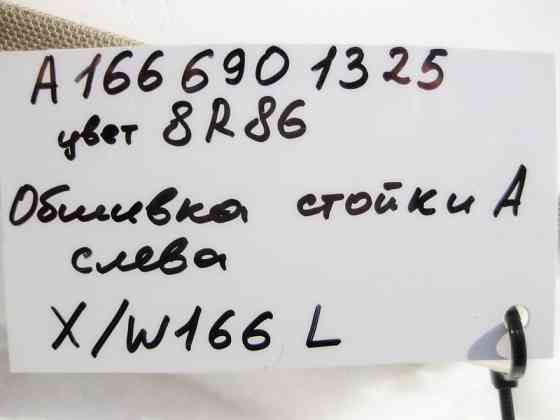 A 166 690 13 25
цвет 8R86
Обшивка стойки А
слева
X/W166 L